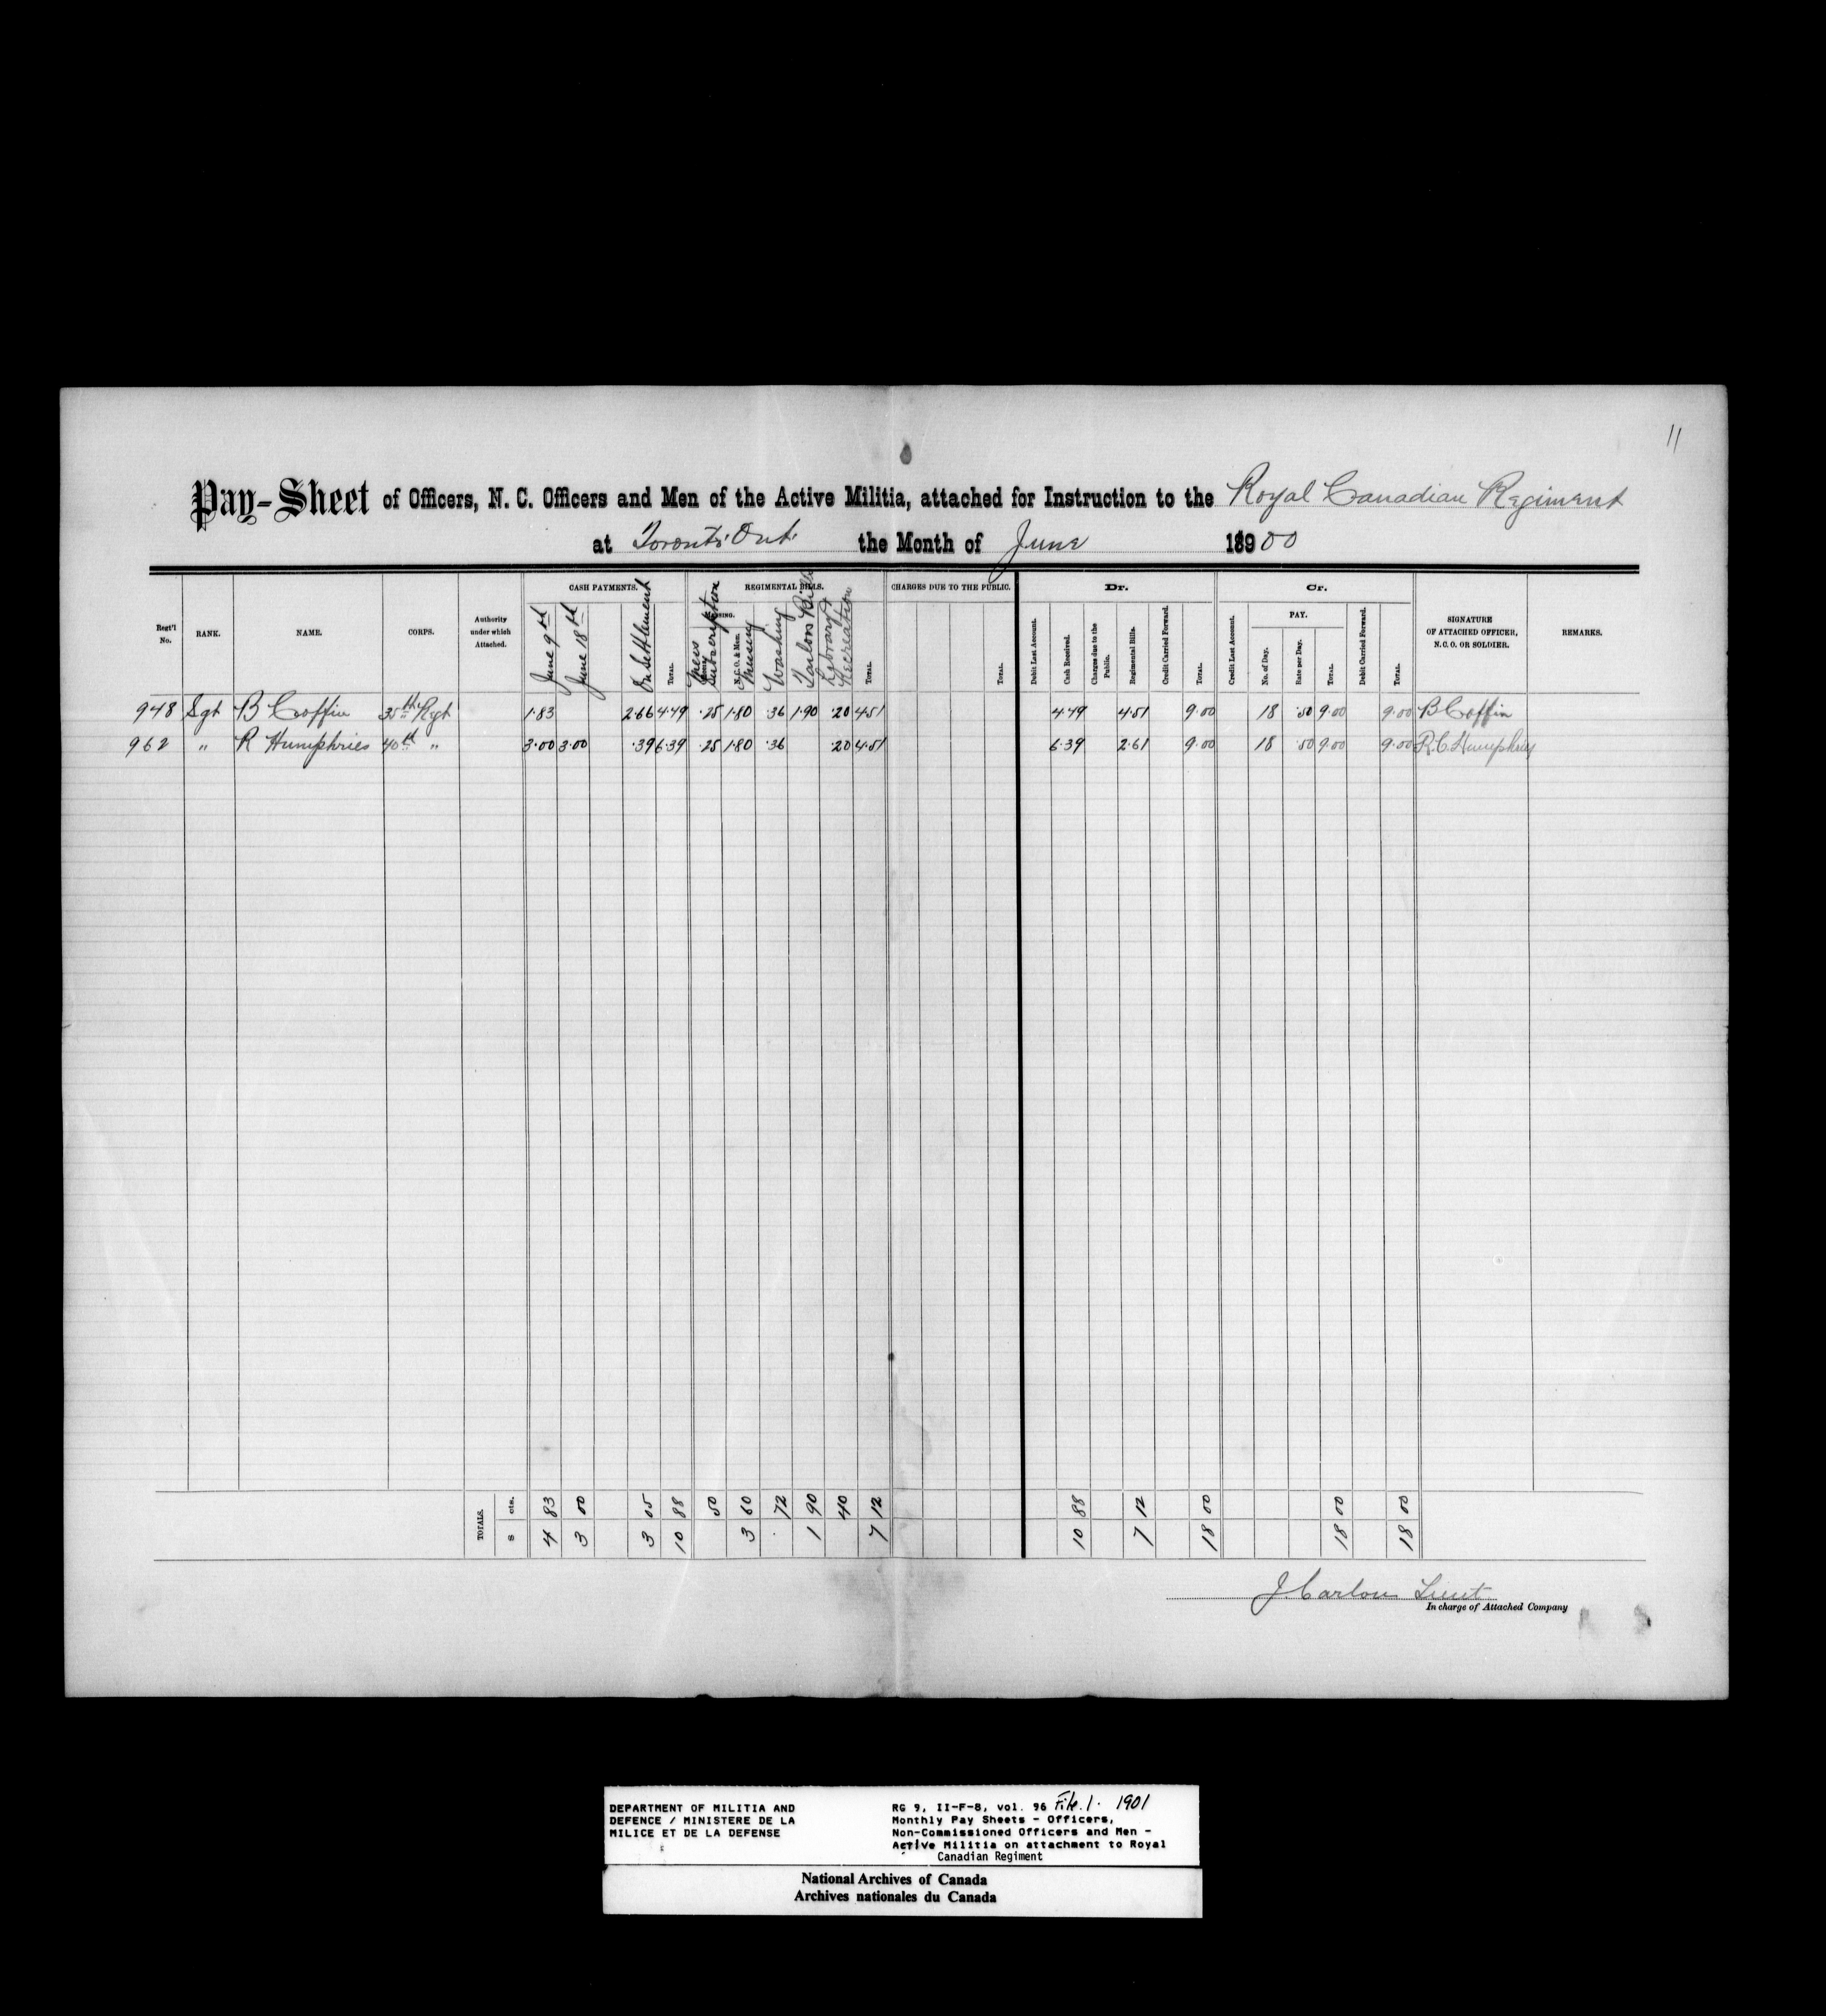 11
Pay-Sheet of Officers, N. C. Officers and Men of the Active Militia, attached for Instruction to the Royal Canadian Regiment
at Toronto Ont. the Month of June 18900
CASH PAYMENTS. REGIMENTAL BILLS. CHARGES DUE TO THE PUBLIC. Dr. Cr.
Regt'l No. RANK. NAME. CORPS. Authority under which Attached. June 9th June 18th On Settlement TOTAL. Mess Subscription N. C. O. & Men. Messing Washing Tailors Bill Library & Recreation TOTAL. TOTAL. Debit Last Account. Cash Received. Charges due to the Public. Regimental Bills. Credit Carried Forward. TOTAL. Credit Last Account. PAY. No. of Day. Rate per Day. TOTAL. Debit Carried Forward. TOTAL. SIGNATURE OF ATTACHED OFFICER, N. C. O. OR SOLDIER. REMARKS.
948 Sgt B Coffin 35th Rgt 1.83 2.66 4.49 .25 1.80 .36 1.90 .20 4.51 4.49 4.51 9.00 18 .50 9.00 9.00 B Coffin
962 " R Humphries 40th " 3.00 3.00 .39 6.39 .25 1.80 .36 .20 4.51 6.39 2.61 9.00 18 .50 9.00 9.00 R. C. Humphries
TOTALS. $ cts. 4 83 3 00 3 05 10 88 50 3 60 .72 1 90 40 7 12 10 88 7 12 18 00 18 00 18 00
J. Carlow Lieut
In charge of Attached Company
DEPARTMENT OF MILITIA AND
DEFENCE / MINISTERE DE LA
MILICE ET DE LA DEFENSE
RG 9, II-F-8, vol. 96 File. 1. 1901
Monthly Pay Sheets - Officers,
Non-Commissioned Officers and Men -
Active Militia on attachment to Royal
Canadian Regiment
National Archives of Canada
Archives nationales du Canada